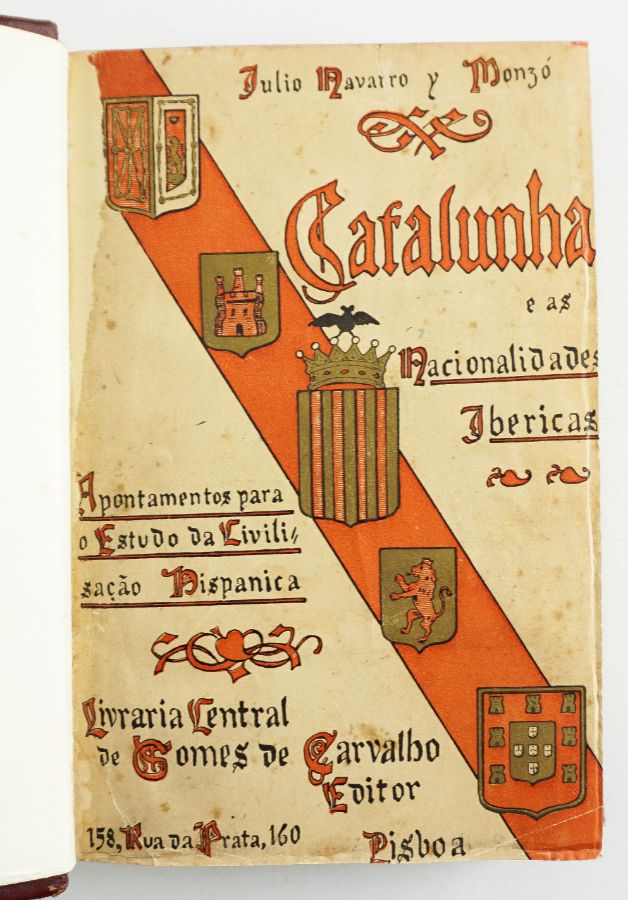 Julio Navarro y Monzó
Catalunha
e as
Nacionalidades
Ibericas
Apontamentos para
o Estudo da Civili-
sação Hispanica
Livraria Central
de Gomes de Carvalho
Editor
158, Rua da Prata, 160
Lisboa